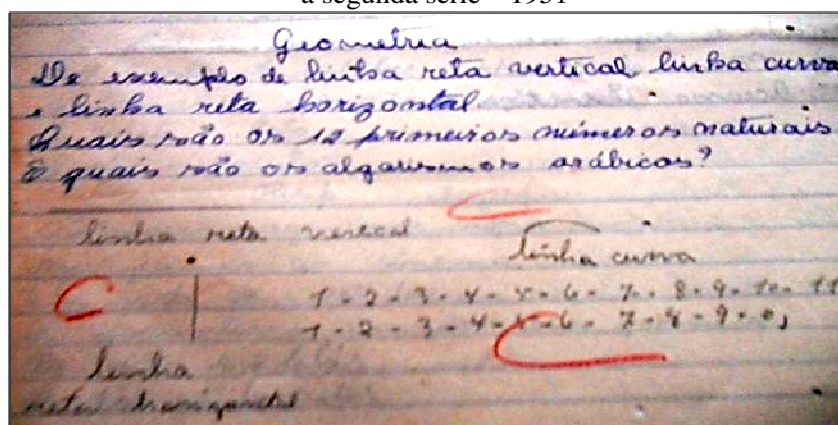 a segunda série – 1951
Geometria
De exemplo de linha reta vertical, linha curva
e linha reta horizontal.
Quais são os 12 primeiros números naturais
E quais são os algarismos arábicos?
linha reta vertical
linha curva
1 - 2 - 3 - 4 - 5 - 6 - 7 - 8 - 9 - 10 - 11
1 - 2 - 3 - 4 - 5 - 6 - 7 - 8 - 9 - 0,
linha
reta horizontal